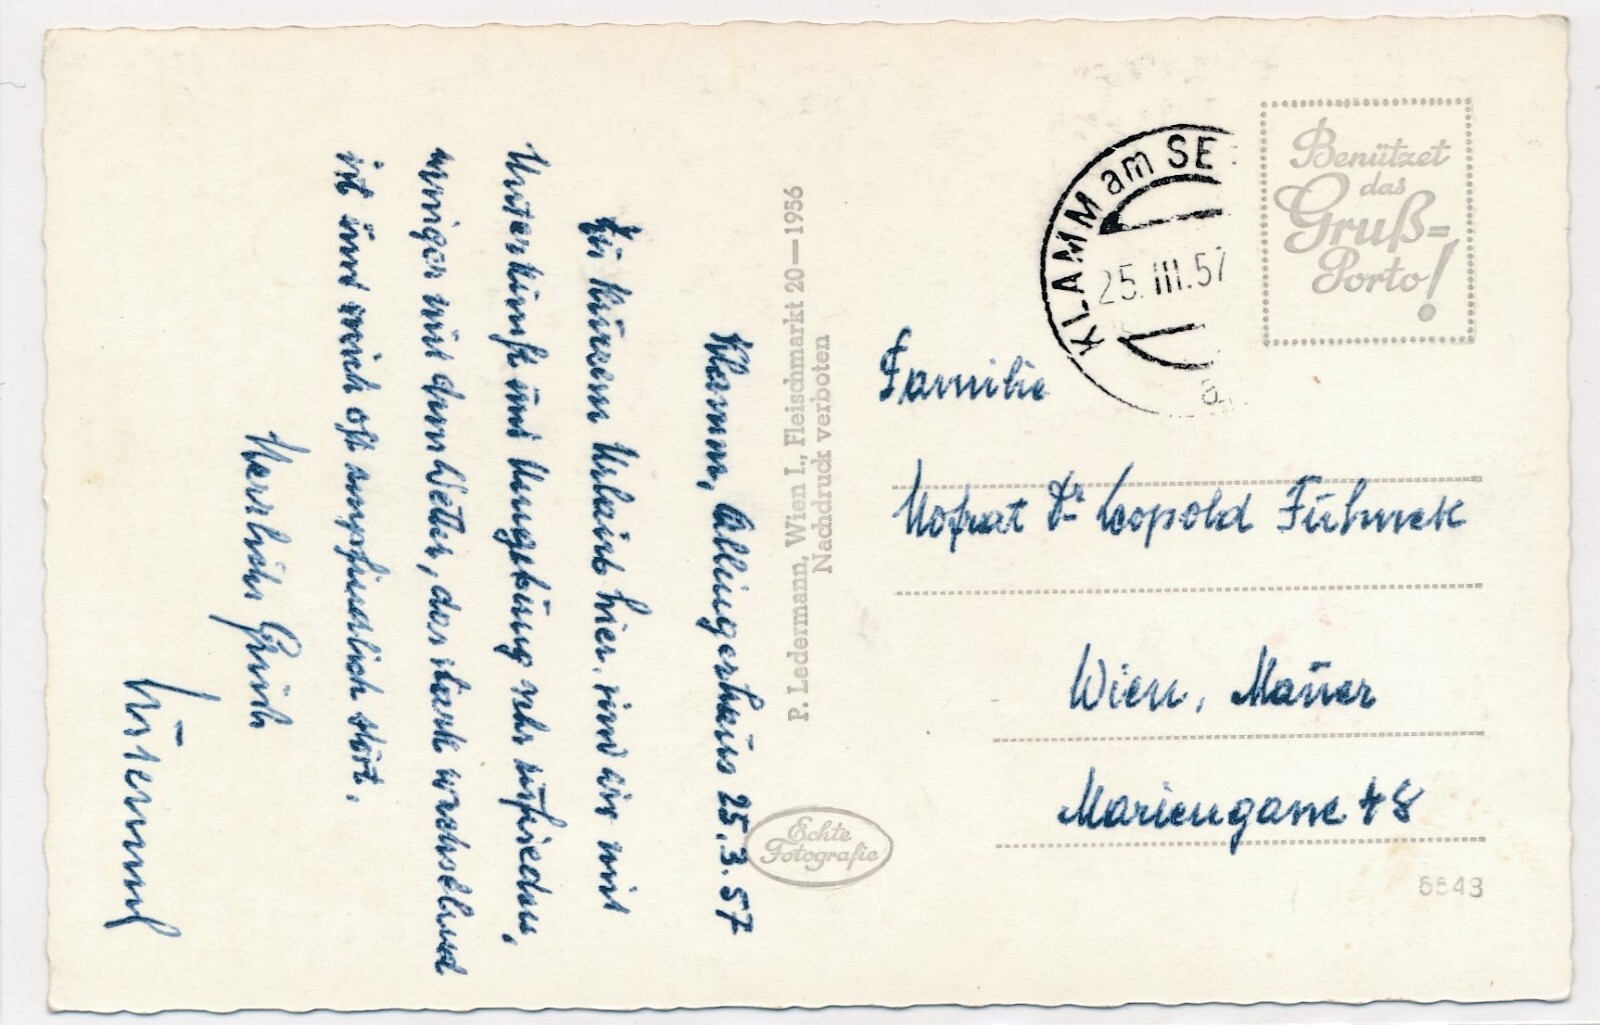 Klamm, Allingerhaus 25.3.57
Zu kurzem Urlaub hier, sind wir mit
Unterkunft und Umgebung sehr zufrieden,
weniger mit dem Wetter, das stark wechselnd
ist und mich oft empfindlich stört.
Herzliche Grüße
P. Ledermann, Wien I., Fleischmarkt 20—1956
Nachdruck verboten
Echte
Fotografie
KLAMM am SE
25.III.57
a
Benützet
das
Gruß=
Porto!
Familie
Hofrat Dr Leopold
Wien, Mauer
Mariengasse 48
6643